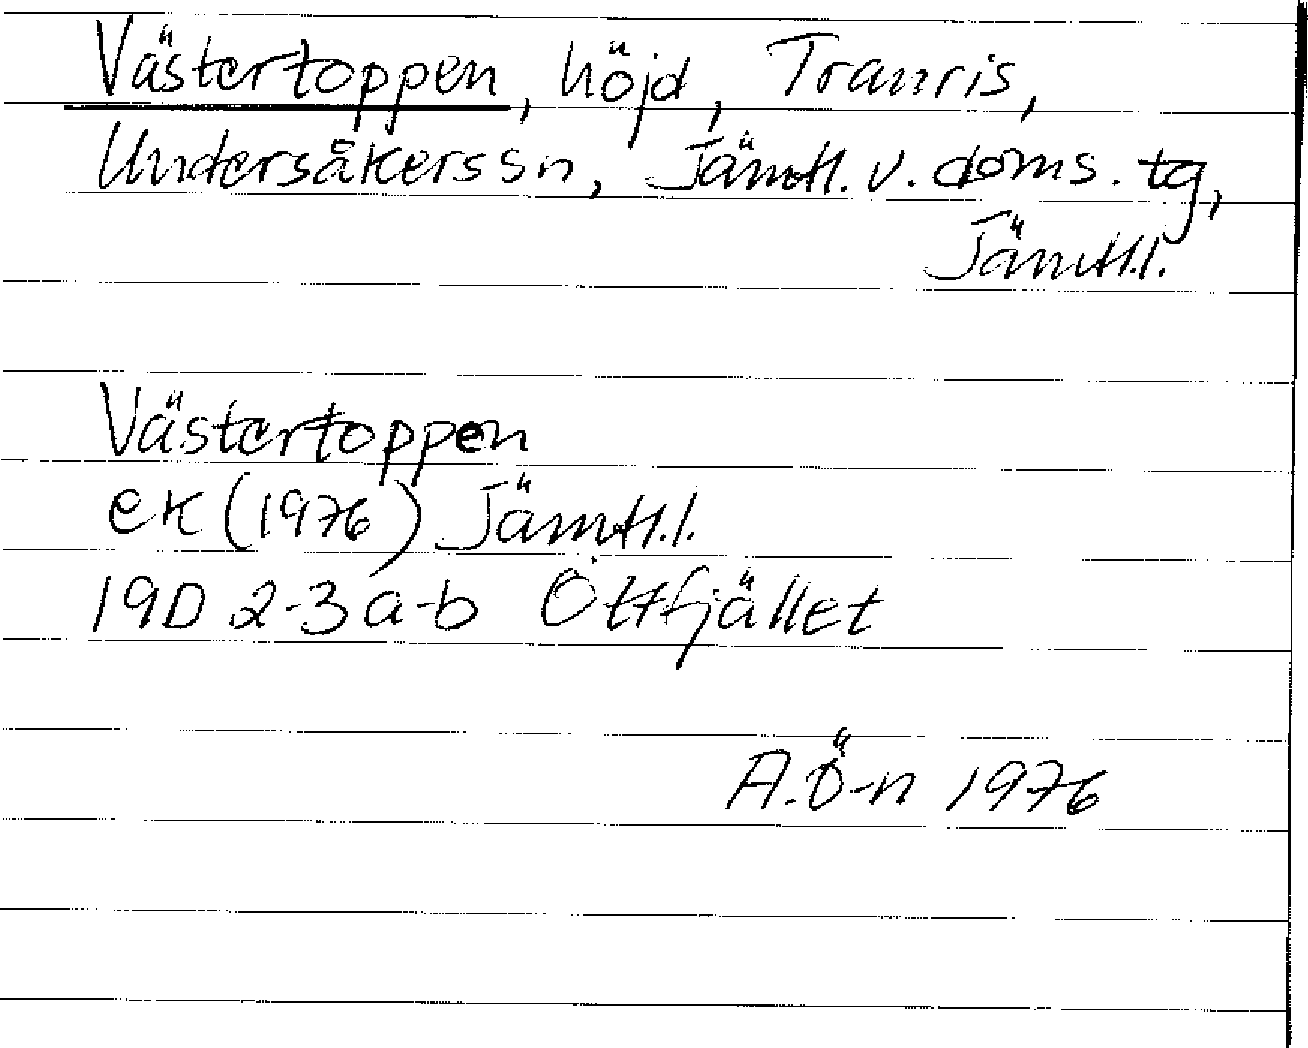 Västertoppen, höjd, Tranris,
Undersåkers sn, Jämtl. v. doms. tg,
Jämtl.l.
Västertoppen
ek (1976) Jämtl.l.
19D 2-3 a-b Ottfjället
A.Ö-n 1976